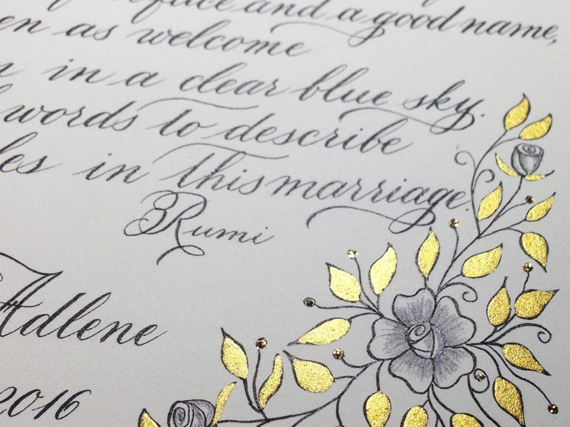 face and a good name,
en as welcome
in in a clear blue sky.
words to describe
les in this marriage.
Rumi
Adlene
2016